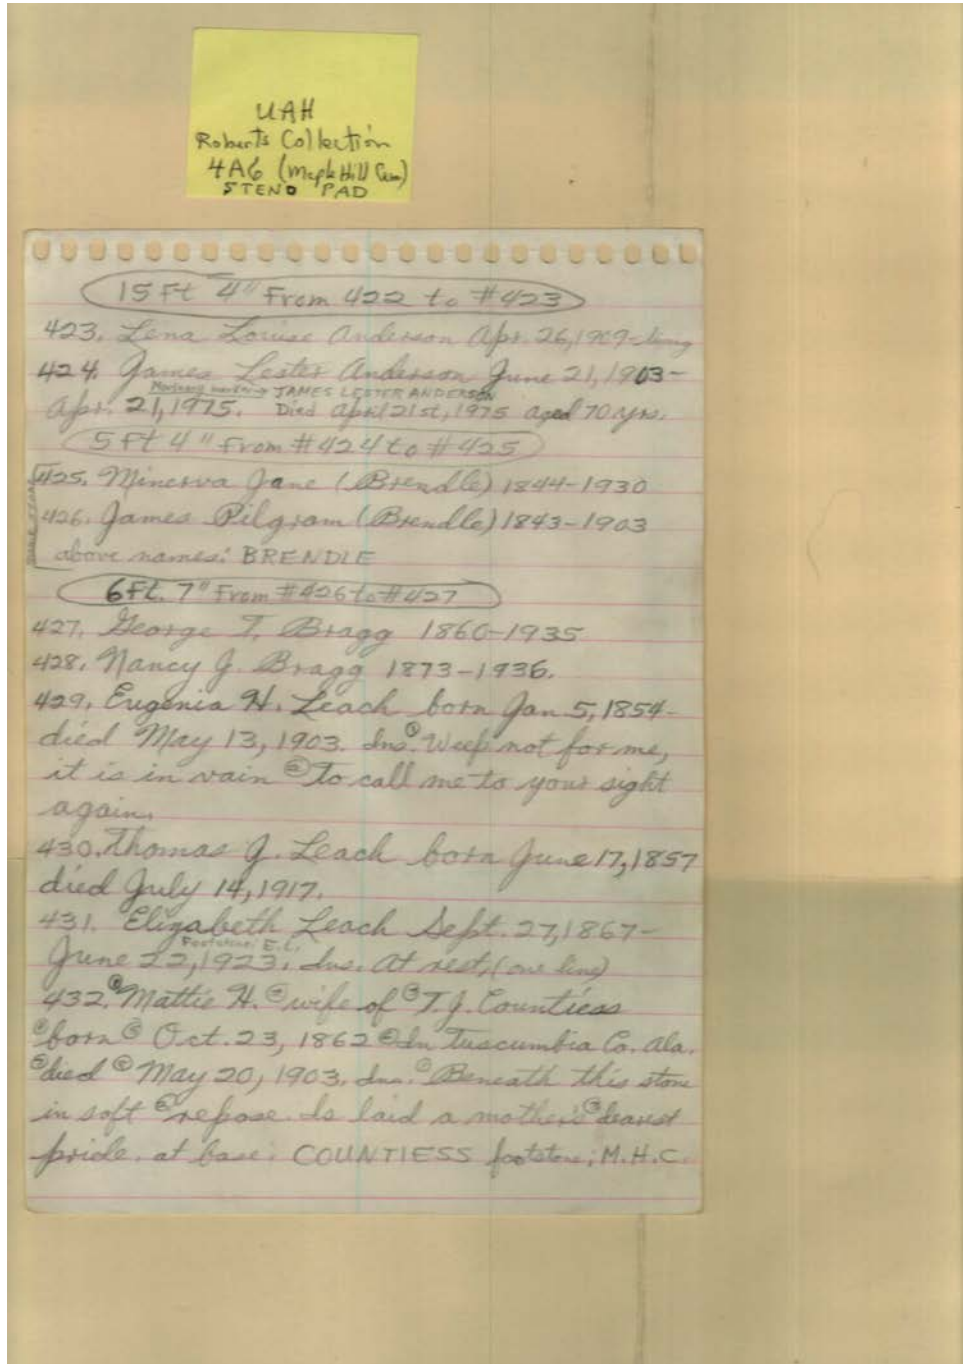 UAH
Roberts Collection
4A6 (Maple Hill Cem)
STENO PAD
15 Ft 4" From 422 to #423
423. Lena Louise Anderson Apr. 26, 1909-living
424. James Lester Anderson June 21, 1903-
Mortuary marker → JAMES LESTER ANDERSON
Apr. 21, 1975. Died April 21st, 1975 aged 70 yrs.
5 Ft 4" From #424 to #425
425. Minerva Jane (Brendle) 1844-1930
426. James Pilgram (Brendle) 1843-1903
above names: BRENDLE
6 Ft. 7" From #426 to #427
427. George T. Bragg 1860-1935
428. Nancy J. Bragg 1873-1936.
429. Eugenia H. Leach born Jan 5, 1854-
died May 13, 1903. Ins. Weep not for me,
it is in vain To call me to your sight
again.
430. Thomas J. Leach born June 17, 1857
died July 14, 1917.
431. Elizabeth Leach Sept. 27, 1867-
Footstone: E.L.
June 22, 1923. Ins. At rest, (one line)
432. Mattie H. wife of T.J. Countiess
born Oct. 23, 1862 In Tuscumbia Co. Ala.
died May 20, 1903. Ins. Beneath this stone
in soft repose. Is laid a mother's dearest
pride. at base: COUNTIESS footstone; M.H.C.